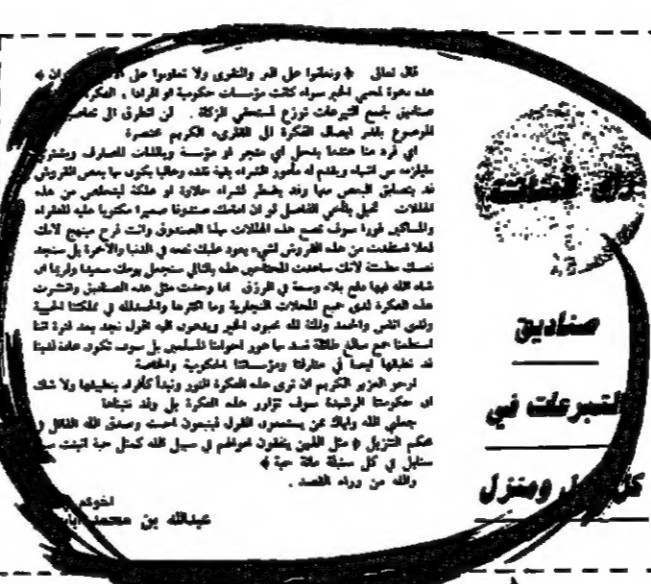 قال تعالى ﴿ وتعاونوا على البر والتقوى ولا تعاونوا على
هذه دعوة لمحبي الخير سواء كانت مؤسسات حكومية او افرادا ،
صناديق لجمع التبرعات توزع لمستحقي الزكاة . لن اتطرق الى
الموضوع بقدر ايصال الفكرة الى القارىء الكريم مختصرة
اي فرد منا عندما يدخل اي متجر او مؤسسة
مايلزمه من اشياء ويقدم له مأمور الشراء بقية نقده وغالبا يكون بها بعض القروش
قد يتضايق البعض منها وقد يضطر لشراء حلاوة او علكة ليتخلص من هذه
تخيل ياأخي الفاضل لو ان امامك صندوقا صغيرا مكتوبا عليه للفقراء
والمساكين فورا سوف تضع هذه بهذا الصندوق وانت فرح مبتهج لأنك
فعلا استفدت من هذه القروش لشيء يعود عليك نفعه في الدنيا والآخرة بل ستجد
نفسك مطمئنة لأنك ساعدت المحتاجين هذه بالتالي ستجعل يومك سعيدا ولربما ان
شاء الله فيها دفع بلاء وسعة في الرزق . اذا وجدت مثل هذه الصناديق وانتشرت
هذه الفكرة لدى جميع المحلات التجارية وما اكثرها والحمدلله في مملكتنا الحبيبة
ولدى انفس والحمد والمنة لله تحبون الخير ويدعون اليه اقول نجد بعد فترة اننا
استطعنا جمع مبالغ طائلة نسد بها عوز اخواننا المسلمين بل سوف تكون عادة لدينا
قد نطبقها ايضا في منازلنا ومؤسساتنا الحكومية والخاصة
ارجو العزيز الكريم ان ترى هذه الفكرة النور ونبدأ كأفراد بتطبيقها ولا شك
ان حكومتنا الرشيدة سوف تؤازر هذه الفكرة بل وقد تتبناها
جعلني الله واياك ممن يستمعون القول فيتبعون احسنه وصدق الله القائل
محكم التنزيل ﴿ مثل الذين ينفقون اموالهم في سبيل الله كمثل حبة انبتت
سنابل في كل سنبلة مائة حبة ﴾
والله من وراء القصد .
اخوكم
عبدالله بن محمد
صناديق
التبرعات في
كل ومنزل